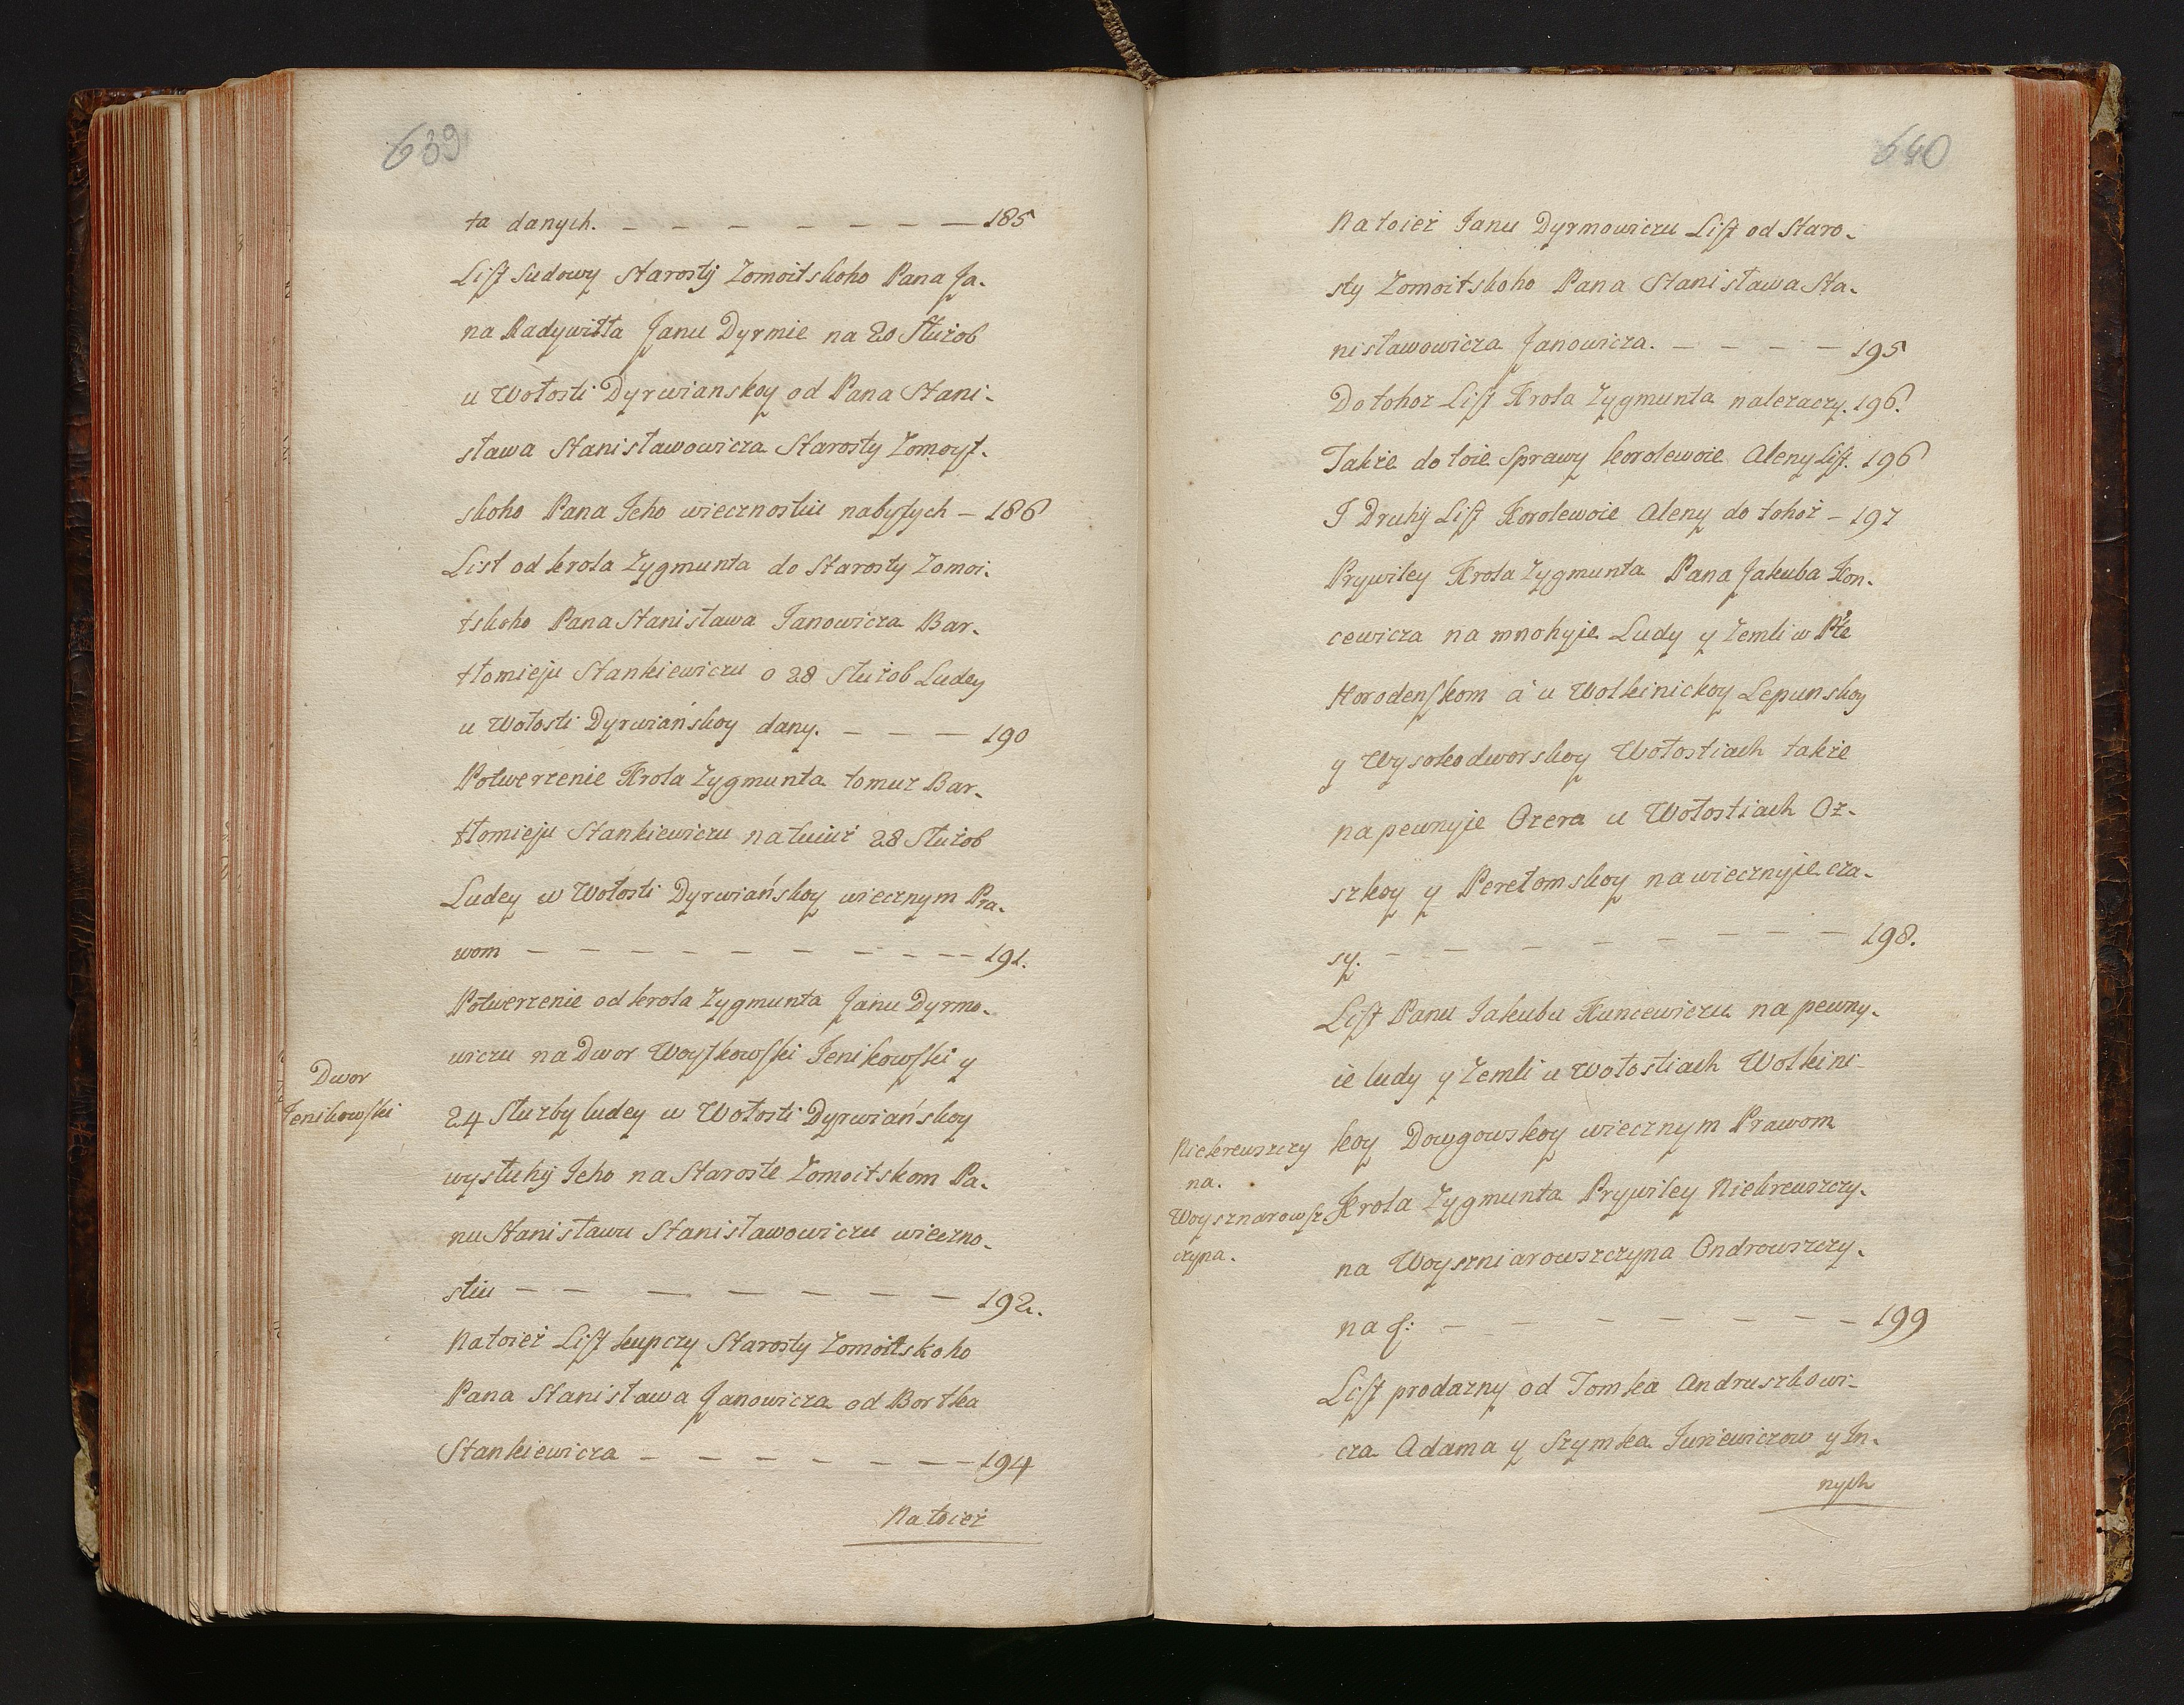 639
ta danych. — — — — — — — 185
List Sudowy Starosty Zomoitskoho Pana Ja-
na Radywiłła Janu Dyrmie na 20 Służob
u Wołosti Dyrwianskoy od Pana Stani-
sława Stanisławowicza Starosty Zomoyt-
skoho Pana Jeho wiecznostiu nabytych — 186
List od krola Zygmunta do Starosty Zomoi-
tskoho Pana Stanisława Janowicza Bar-
tłomieju Stankiewiczu o 28 Służob Ludey
u Wołosti Dyrwiańskoy dany. — — — 190
Potwerzenie Krola Zygmunta tomuz Bar-
tłomieju Stankiewiczu na tuiuż 28 Służob
Ludey w Wołosti Dyrwiańskoy wiecznym Pra-
wom — — — — — — — — — — 191.
Potwerzenie od krola Zygmunta Janu Dyrmo-
wiczu na Dwor Woytkowski Jenikowski y
Dwor
Jenikowski
24 Służby ludey w Wołosti Dyrwiańskoy
wysłuhy Jeho na Staroste Zomoitskom Pa-
nu Stanisławu Stanisławowiczu wieczno-
stiu — — — — — — — — 192.
Na toież List kupczy Starosty Zomoitskoho
Pana Stanisława Janowicza od Bortka
Stankiewicza — — — — — — — 194
Na toież
640
Na toież Janu Dyrmowiczu List od Staro-
sty Zomoitskoho Pana Stanisława Sta-
nisławowicza Janowicza. — — — — 195
Do tohoz List Krola Zygmunta nalezaczy. 196.
Także do toie Sprawy korolewoie Aleny List. 196
I Druhij List Korolewoie Aleny do tohoż — 197
Prywiley Krola Zygmunta Pana Jakuba Kon-
cewicza na mnohyie Ludy y Zemli w Pte
Horodenskom a u Wolkinickoy Lepunskoy
y Wysokodworskoy Wołostiach także
na pewnyie Ozera u Wołostiach Oż-
szkoy y Perełomskoy na wiecznyie cza-
sy. — — — — — — — — 198.
List Panu Jakubu Kuncewiczu na pewny-
ie ludy y Zemli u Wołostiach Wolkini-
koy Dowgowskoy wiecznym Prawom
Niekreuszczy
na.
Woysznarowsz
czyna.
Krola Zygmunta Prywiley Niekreuszczy-
na Woyszniarowszczyna Ondrowszczy-
na &: — — — — — — — 199
List prodazny od Tomka Andruszkowi-
cza Adama y Szymka Juriewiczow y In-
nych